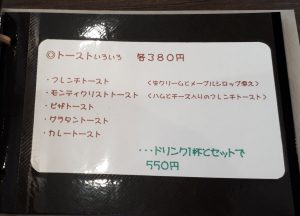 ◎トーストいろいろ 各380円
・フレンチトースト <生クリームとメープルシロップ添え>
・モンティクリストトースト <ハムとチーズ入りのフレンチトースト>
・ピザトースト
・グラタントースト
・カレートースト
・・・ドリンク1杯とセットで
550円